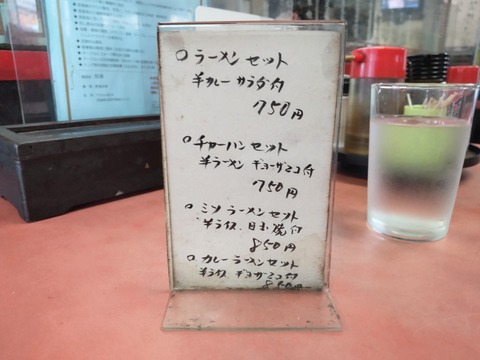 ○ ラーメンセット
半カレー サラダ付
750円
○ チャーハンセット
半ラーメン ギョーザ2コ付
750円
○ ミソラーメンセット
半ライス、目玉焼付
850円
○ カレーラーメンセット
半ライス、ギョーザ2コ付
850円